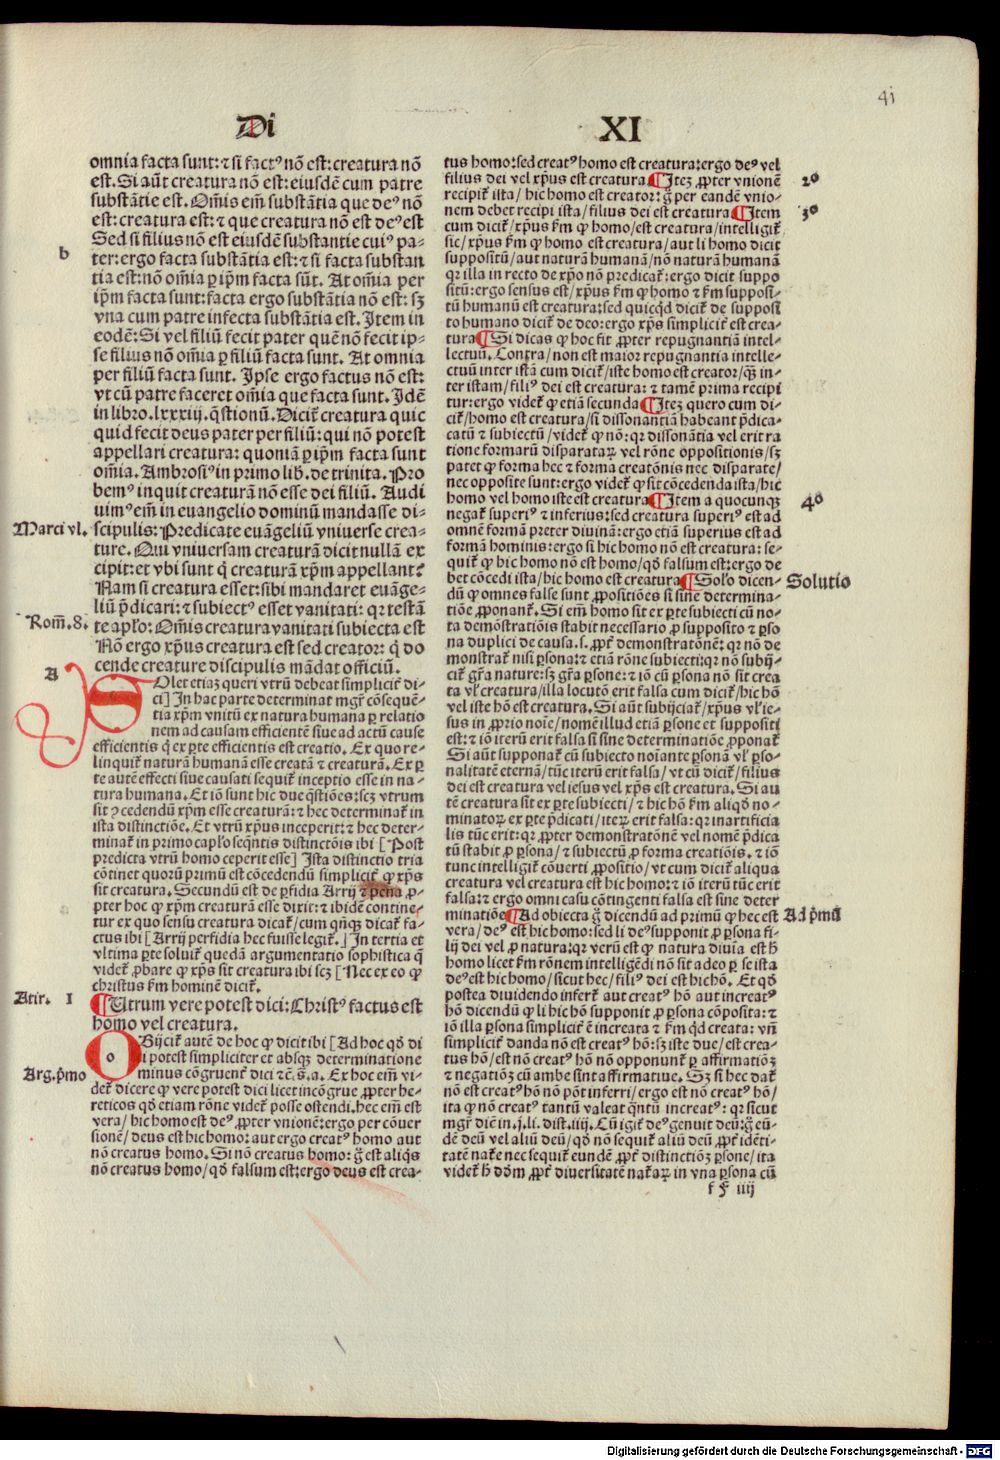 41
Di
XI
omnia facta sunt: ⁊ si factꝰ nõ est: creatura nõ
est. Si aũt creatura nõ est: eiusdẽ cum patre
substãtie est. Om̃is em̃ substãtia que deꝰ nõ
est: creatura est: ⁊ que creatura nõ est deꝰ est
Sed si filius nõ est eiusdẽ substantie cuiꝰ pa-
b
ter: ergo facta substãtia est: ⁊ si facta substan
tia est: nõ om̃ia ꝑ ip̃m facta sũt. At om̃ia per
ip̃m facta sunt: facta ergo substãtia nõ est: sꝫ
vna cum patre infecta substãtia est. Item in
eodẽ: Si vel filiũ fecit pater quẽ nõ fecit ip-
se filius nõ om̃ia ꝑ filiũ facta sunt. At omnia
per filiũ facta sunt. Ipse ergo factus nõ est:
vt cũ patre faceret om̃ia que facta sunt. Idẽ
in libro .lxxxiij. q̃stionũ. Dicit̃ creatura quic
quid fecit deus pater per filiũ: qui nõ potest
appellari creatura: quoniã ꝑ ip̃m facta sunt
om̃ia. Ambrosiꝰ in primo lib. de trinita. Pro
bemꝰ inquit creaturã nõ esse dei filiũ. Audi
uimꝰ em̃ in euangelio dominũ mandasse di-
Marci vl.
scipulis: Predicate euãgeliũ vniuerse crea-
ture. Qui vniuersam creaturã dicit nullã ex
cipit: et vbi sunt q̃ creaturã xp̃m appellant?
Nam si creatura esset: sibi mandaret euãge-
liũ p̃dicari: ⁊ subiectꝰ esset vanitati: qr testã
Rom̃. 8.
te ap̃lo: Om̃is creatura vanitati subiecta est
Nõ ergo xp̃us creatura est sed creator: q̃ do
cende creature discipulis mãdat officiũ.
A
SOlet etiaꝫ queri vtrũ debeat simplicit̃ di-
ci] In hac parte determinat mgr̃ cõsequẽ-
tia xp̃m vnitũ ex natura humana ꝑ relatio
nem ad causam efficientẽ siue ad actũ cause
efficientis q̃ ex ꝑte efficientis est creatio. Ex quo re-
linquit̃ naturã humanã esse creatã ⁊ creaturã. Ex ꝑ
te autẽ effecti siue causati sequit̃ inceptio esse in na-
tura humana. Et iõ sunt hic due q̃stiões: scꝫ vtrum
sit ꝯcedendũ xp̃m esse creaturã: ⁊ hec determinat̃ in
ista distinctiõe. Et vtrũ xp̃us inceperit: ⁊ hec deter-
minat̃ in primo cap̃lo seq̃ntis distinctõis ibi [Post
predicta vtrũ homo ceperit esse] Ista distinctio tria
cõtinet quorũ primũ est cõcedendũ simplicit̃ ꝙ xp̃s
sit creatura. Secundũ est de ꝑfidia Arrij ⁊ pena ꝓ-
pter hoc ꝙ xp̃m creaturã esse dixit: ⁊ ibidẽ contine-
tur ex quo sensu creatura dicat̃/ cum qñqꝫ dicat̃ fa-
ctus ibi [Arrij perfidia hec fuisse legit̃.] In tertia et
vltima ꝑte soluit̃ quedã argumentatio sophistica q̃
videt̃ ꝓbare ꝙ xp̃s sit creatura ibi scꝫ [Nec ex eo ꝙ
christus km̃ hominẽ dicit̃.
Atir. I
¶Utrum vere potest dici: Christꝰ factus est
homo vel creatura.
OBijcit̃ autẽ de hoc ꝙ dicit ibi [Ad hoc qd̃ di
o
i potest simpliciter et absqꝫ determinatione
Arg.p̃mo
minus cõgruent̃ dici ⁊c̃. s̃. a. Ex hoc em̃ vi-
det̃ dicere ꝙ vere potest dici licet incõgrue ꝓpter he-
reticos qd̃ etiam rõne videt̃ posse ostendi. hec em̃ est
vera/ hic homo est deꝰ ꝓpter vnionẽ: ergo per cõuer
sionẽ/ deus est hic homo: aut ergo creatꝰ homo aut
nõ creatus homo. Si nõ creatus homo: g̃ est aliq̃s
nõ creatus homo/ qd̃ falsum est: ergo deus est crea-
tus homo: sed creatꝰ homo est creatura: ergo deꝰ vel
filius dei vel xp̃us est creatura ¶Iteꝫ ꝓpter vnionẽ
20
recipit̃ ista/ hic homo est creator: g̃ per eandẽ vnio-
nem debet recipi ista/ filius dei est creatura ¶Item
30
cum dicit̃/ xp̃us km̃ ꝙ homo/ est creatura/ intelligit̃
sic/ xp̃us km̃ ꝙ homo est creatura/ aut li homo dicit
suppositũ/ aut naturã humanã/ nõ naturã humanã
qr illa in recto de xp̃o nõ predicat̃: ergo dicit suppo
sitũ: ergo sensus est/ xp̃us km̃ ꝙ homo ⁊ km̃ supposi-
tũ humanũ est creatura: sed quicqd̃ dicit̃ de supposi
to humano dicit̃ de deo: ergo xp̃s simplicit̃ est crea-
tura ¶Si dicas ꝙ hoc fit ꝓpter repugnantiã intel-
lectuũ. Contra/ non est maior repugnantia intelle-
ctuũ inter istã cum dicit̃/ iste homo est creator/ q̃ꝫ in-
ter istam/ filiꝰ dei est creatura: ⁊ tamẽ prima recipi
tur: ergo videt̃ ꝙ etiã secunda ¶Iteꝫ quero cum di-
cit̃/ homo est creatura/ si dissonantiã habeant p̃dica-
catũ ⁊ subiectũ/ videt̃ ꝙ nõ: qr dissonãtia vel erit ra
tione formarũ disparataꝝ vel rõne oppositionis/ sꝫ
patet ꝙ forma hec ⁊ forma creatõnis nec disparate/
nec opposite sunt: ergo videt̃ ꝙ sit cõcedenda ista/ hic
homo vel homo iste est creatura ¶Item a quocunqꝫ
40
negat̃ superiꝰ ⁊ inferius: sed creatura superiꝰ est ad
omnẽ formã preter diuinã: ergo etiã superius est ad
formã hominis: ergo si hic homo nõ est creatura: se-
quit̃ ꝙ hic homo nõ est homo/ qd̃ falsum est: ergo de
bet cõcedi ista/ hic homo est creatura ¶Sol̃o dicen-
Solutio
dũ ꝙ omnes false sunt ꝓpositiões si sine determina-
tiõe ꝓponant̃. Si em̃ homo sit ex ꝑte subiecti cũ no-
ta demõstratiõis stabit necessario ꝓ supposito ⁊ ꝑso
na duplici de causa. s. ꝓpt̃ demonstratonẽ: qr nõ de
monstrat̃ nisi ꝑsona: ⁊ etiã rõne subiecti: qr nõ subij-
cit̃ gr̃a nature: sꝫ gr̃a ꝑsone: ⁊ iõ cũ ꝑsona nõ sit crea
ta vl̃ creatura/ illa locutõ erit falsa cum dicit̃/ hic hõ
vel iste hõ est creatura. Si aũt subijciat̃/ xp̃us vl̃ ie-
sus in ꝓprio noĩe/ nomẽ illud etiã ꝑsone et suppositi
est: ⁊ iõ iterũ erit falsa si sine determinatiõe ꝓponat̃
Si aũt supponat̃ cũ subiecto noĩante ꝑsonã vl̃ ꝑso-
nalitatẽ eternã/ tũc iterũ erit falsa/ vt cũ dicit̃/ filius
dei est creatura vel iesus vel xp̃s est creatura. Si au
tẽ creatura sit ex ꝑte subiecti/ ⁊ hic hõ km̃ aliqd̃ no-
minatoꝝ ex ꝑte p̃dicati/ iteꝝ erit falsa: qr inartificia
lis tũc erit: qr ꝓpter demonstratonẽ vel nomẽ p̃dica
tũ stabit ꝓ ꝑsona/ ⁊ subiectũ ꝓ forma creatiõis. ⁊ iõ
tunc intelligit̃ cõuerti ꝓpositio/ vt cum dicit̃ aliqua
creatura vel creatura est hic homo: ⁊ iõ iterũ tũc erit
falsa: ⁊ ergo omni casu cõtingenti falsa est sine deter
minatiõe ¶Ad obiecta g̃ dicendũ ad primũ ꝙ hec est
Ad p̃mũ
vera/ deꝰ est hic homo: sed li deꝰ supponit ꝓ ꝑsona fi-
lij dei vel ꝓ natura: qr verũ est ꝙ natura diuĩa est h̃
homo licet km̃ rõnem intelligẽdi nõ sit adeo ꝑ se ista
deꝰ est hic homo/ sicut hec/ filiꝰ dei est hic hõ. Et qd̃
postea diuidendo infert̃ aut creatꝰ hõ aut increatꝰ
hõ dicendũ ꝙ li hic hõ supponit ꝓ ꝑsona cõposita: ⁊
iõ illa ꝑsona simplicit̃ ẽ increata ⁊ km̃ qd̃ creata: vñ
simplicit̃ danda nõ est creatꝰ hõ: sꝫ iste due/ est crea-
tus hõ/ est nõ creatꝰ hõ nõ opponunt̃ ꝑ affirmatiõꝫ
⁊ negatiõꝫ cũ ambe sint affirmatiue. Sꝫ si hec dat̃
nõ est creatꝰ hõ nõ põt inferri/ ergo est nõ creatꝰ hõ/
ita ꝙ nõ creatꝰ tantũ valeat q̃ntũ increatꝰ: qr sicut
mgr̃ diẽ in .j. li. dist. iiij. Cũ igit̃ deꝰ genuit deũ: g̃ eũ-
dẽ deũ vel aliũ deũ/ qd̃ nõ sequit̃ aliũ deũ ꝓpt̃ idẽti-
tatẽ nat̃e nec sequit̃ eundẽ ꝓpt̃ distinctiõꝫ ꝑsone/ ita
videt̃ h̃ dõm ꝓpt̃ diuersitatẽ nat̃aꝝ in vna ꝑsona cũ
f f iiij
Digitalisierung gefördert durch die Deutsche Forschungsgemeinschaft - DFG